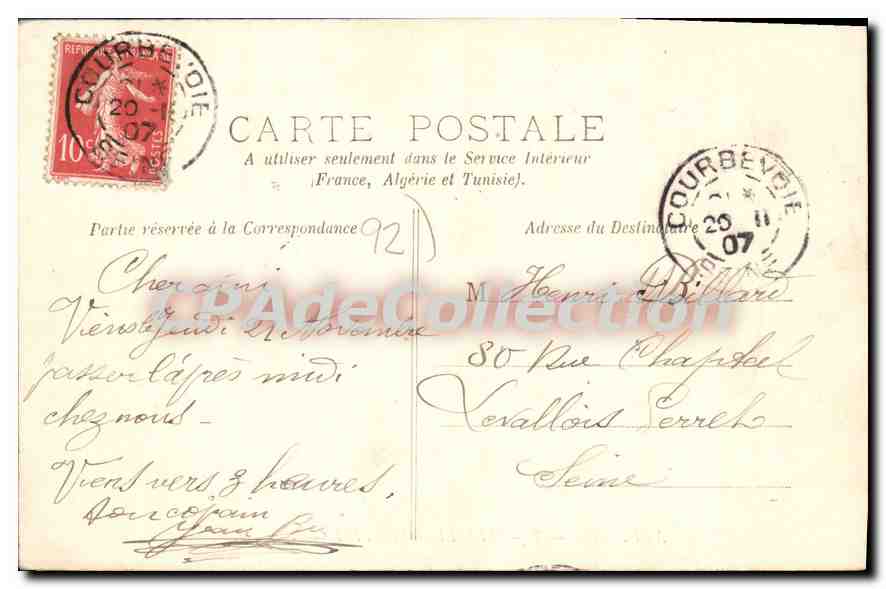 REPUBLIQUE
10c
POSTES
COURBEVOIE
20
07
CARTE POSTALE
A utiliser seulement dans le Service Intérieur
(France, Algérie et Tunisie).
COURBEVOIE
20 11
07
Partie réservée à la Correspondance
92
Adresse du Destinataire
Cher ami
Viens Jeudi 21 Novembre
passer l'après midi
chez nous -
Viens vers 3 heures,
ton copain
Jean
M Henri Billard
80 Rue Chaptal
Levallois Perret
Seine
CPAdeCollection.com